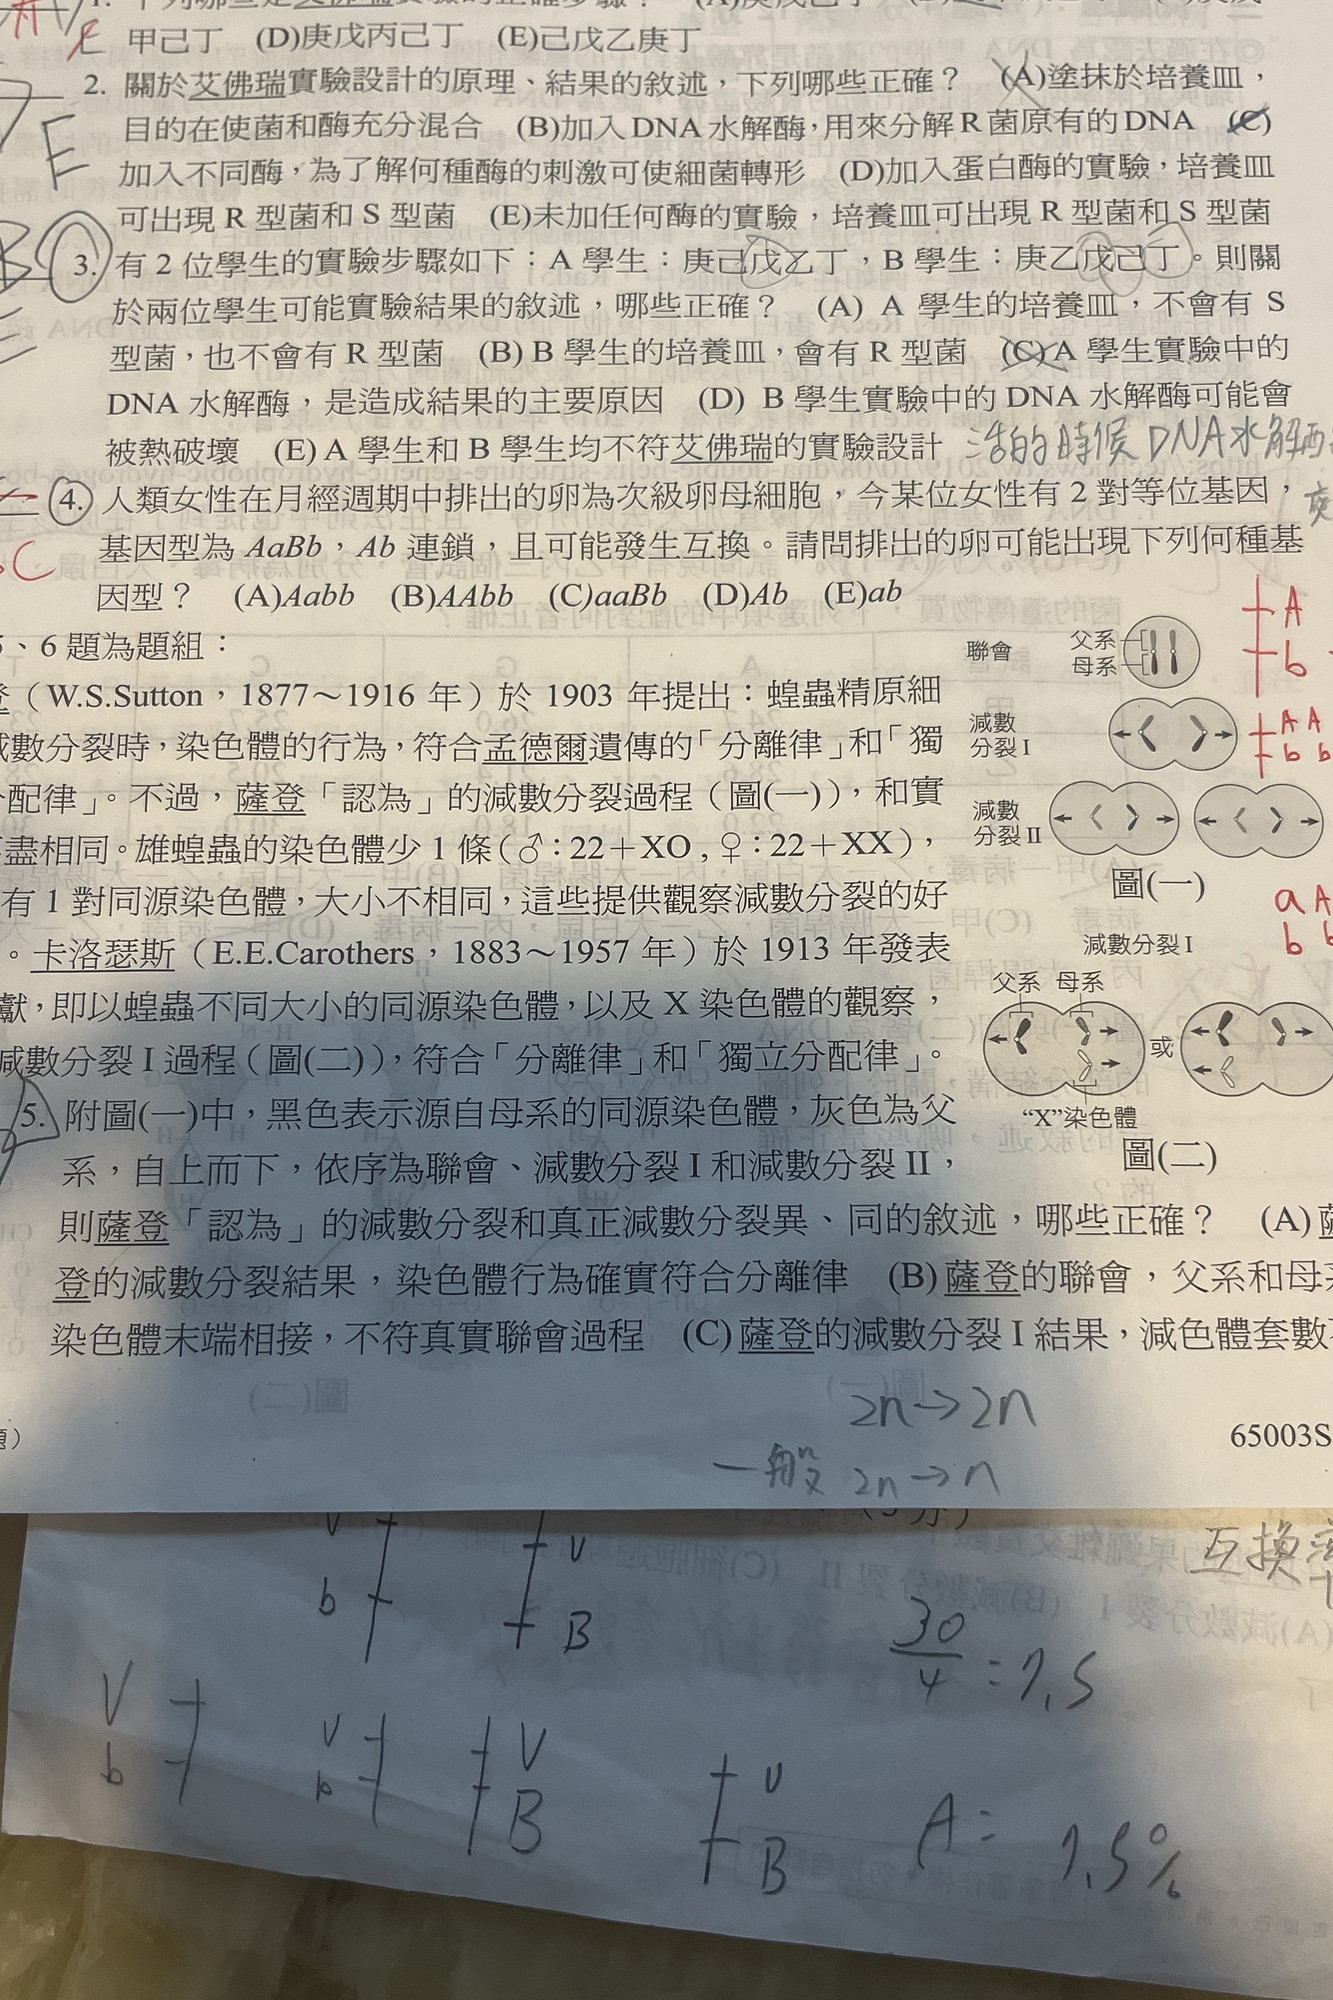 甲己丁 (D)庚戊丙己丁 (E)己戊乙庚丁
2. 關於艾佛瑞實驗設計的原理、結果的敘述，下列哪些正確？ (A)塗抹於培養皿，
目的在使菌和酶充分混合 (B)加入DNA水解酶，用來分解R菌原有的DNA (C)
E
加入不同酶，為了解何種酶的刺激可使細菌轉形 (D)加入蛋白酶的實驗，培養皿
可出現 R 型菌和 S 型菌 (E)未加任何酶的實驗，培養皿可出現 R 型菌和 S 型菌
3. 有 2 位學生的實驗步驟如下：A 學生：庚己戊乙丁，B 學生：庚乙戊己丁。則關
於兩位學生可能實驗結果的敘述，哪些正確？ (A) A 學生的培養皿，不會有 S
型菌，也不會有 R 型菌 (B) B 學生的培養皿，會有 R 型菌 (C) A 學生實驗中的
DNA 水解酶，是造成結果的主要原因 (D) B 學生實驗中的 DNA 水解酶可能會
被熱破壞 (E) A 學生和 B 學生均不符艾佛瑞的實驗設計
的時候 DNA水解
4. 人類女性在月經週期中排出的卵為次級卵母細胞，今某位女性有 2 對等位基因，
基因型為 AaBb，Ab 連鎖，且可能發生互換。請問排出的卵可能出現下列何種基
因型？ (A)Aabb (B)AAbb (C)aaBb (D)Ab (E)ab
C
、6 題為題組：
（W.S.Sutton，1877～1916 年）於 1903 年提出：蝗蟲精原細
減數分裂時，染色體的行為，符合孟德爾遺傳的「分離律」和「獨
配律」。不過，薩登「認為」的減數分裂過程（圖(一)），和實
盡相同。雄蝗蟲的染色體少 1 條（♂：22＋XO，♀：22＋XX），
有 1 對同源染色體，大小不相同，這些提供觀察減數分裂的好
。卡洛瑟斯（E.E.Carothers，1883～1957 年）於 1913 年發表
獻，即以蝗蟲不同大小的同源染色體，以及 X 染色體的觀察，
減數分裂 I 過程（圖(二)），符合「分離律」和「獨立分配律」。
聯會
父系
母系
減數
分裂 I
減數
分裂 II
圖(一)
A
b
A A
b b
a A
b b
減數分裂 I
父系 母系
或
“X”染色體
圖(二)
5. 附圖(一)中，黑色表示源自母系的同源染色體，灰色為父
系，自上而下，依序為聯會、減數分裂 I 和減數分裂 II，
則薩登「認為」的減數分裂和真正減數分裂異、同的敘述，哪些正確？ (A)薩
登的減數分裂結果，染色體行為確實符合分離律 (B)薩登的聯會，父系和母系
染色體末端相接，不符真實聯會過程 (C)薩登的減數分裂 I 結果，減色體套數
2n→2n
一般 2n→n
65003S
互換率
V
b
V
B
30/4=7.5
V
b
V
b
V
B
V
B
A= 7.5%